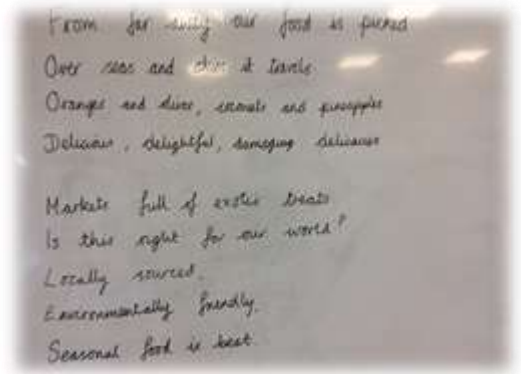 From far away our food is picked
Over seas and skies it travels
Oranges and olives, coconuts and pineapples
Delicious, delightful, damaging delicacies
Markets full of exotic treats
Is this right for our world?
Locally sourced,
Environmentally friendly,
Seasonal food is best.